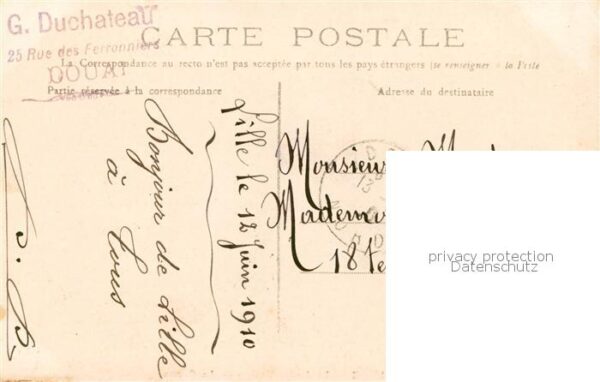 G. Duchateau
25 Rue des Ferronniers
DOUAI
CARTE POSTALE
La Correspondance au recto n'est pas acceptée par tous les pays étrangers (se renseigner à la Poste
Partie réservée à la correspondance
Adresse du destinataire
Lille le 12 Juin 1910
Bonjour de Lille
à tous
Monsieur
Mademo
18
privacy protection
Datenschutz